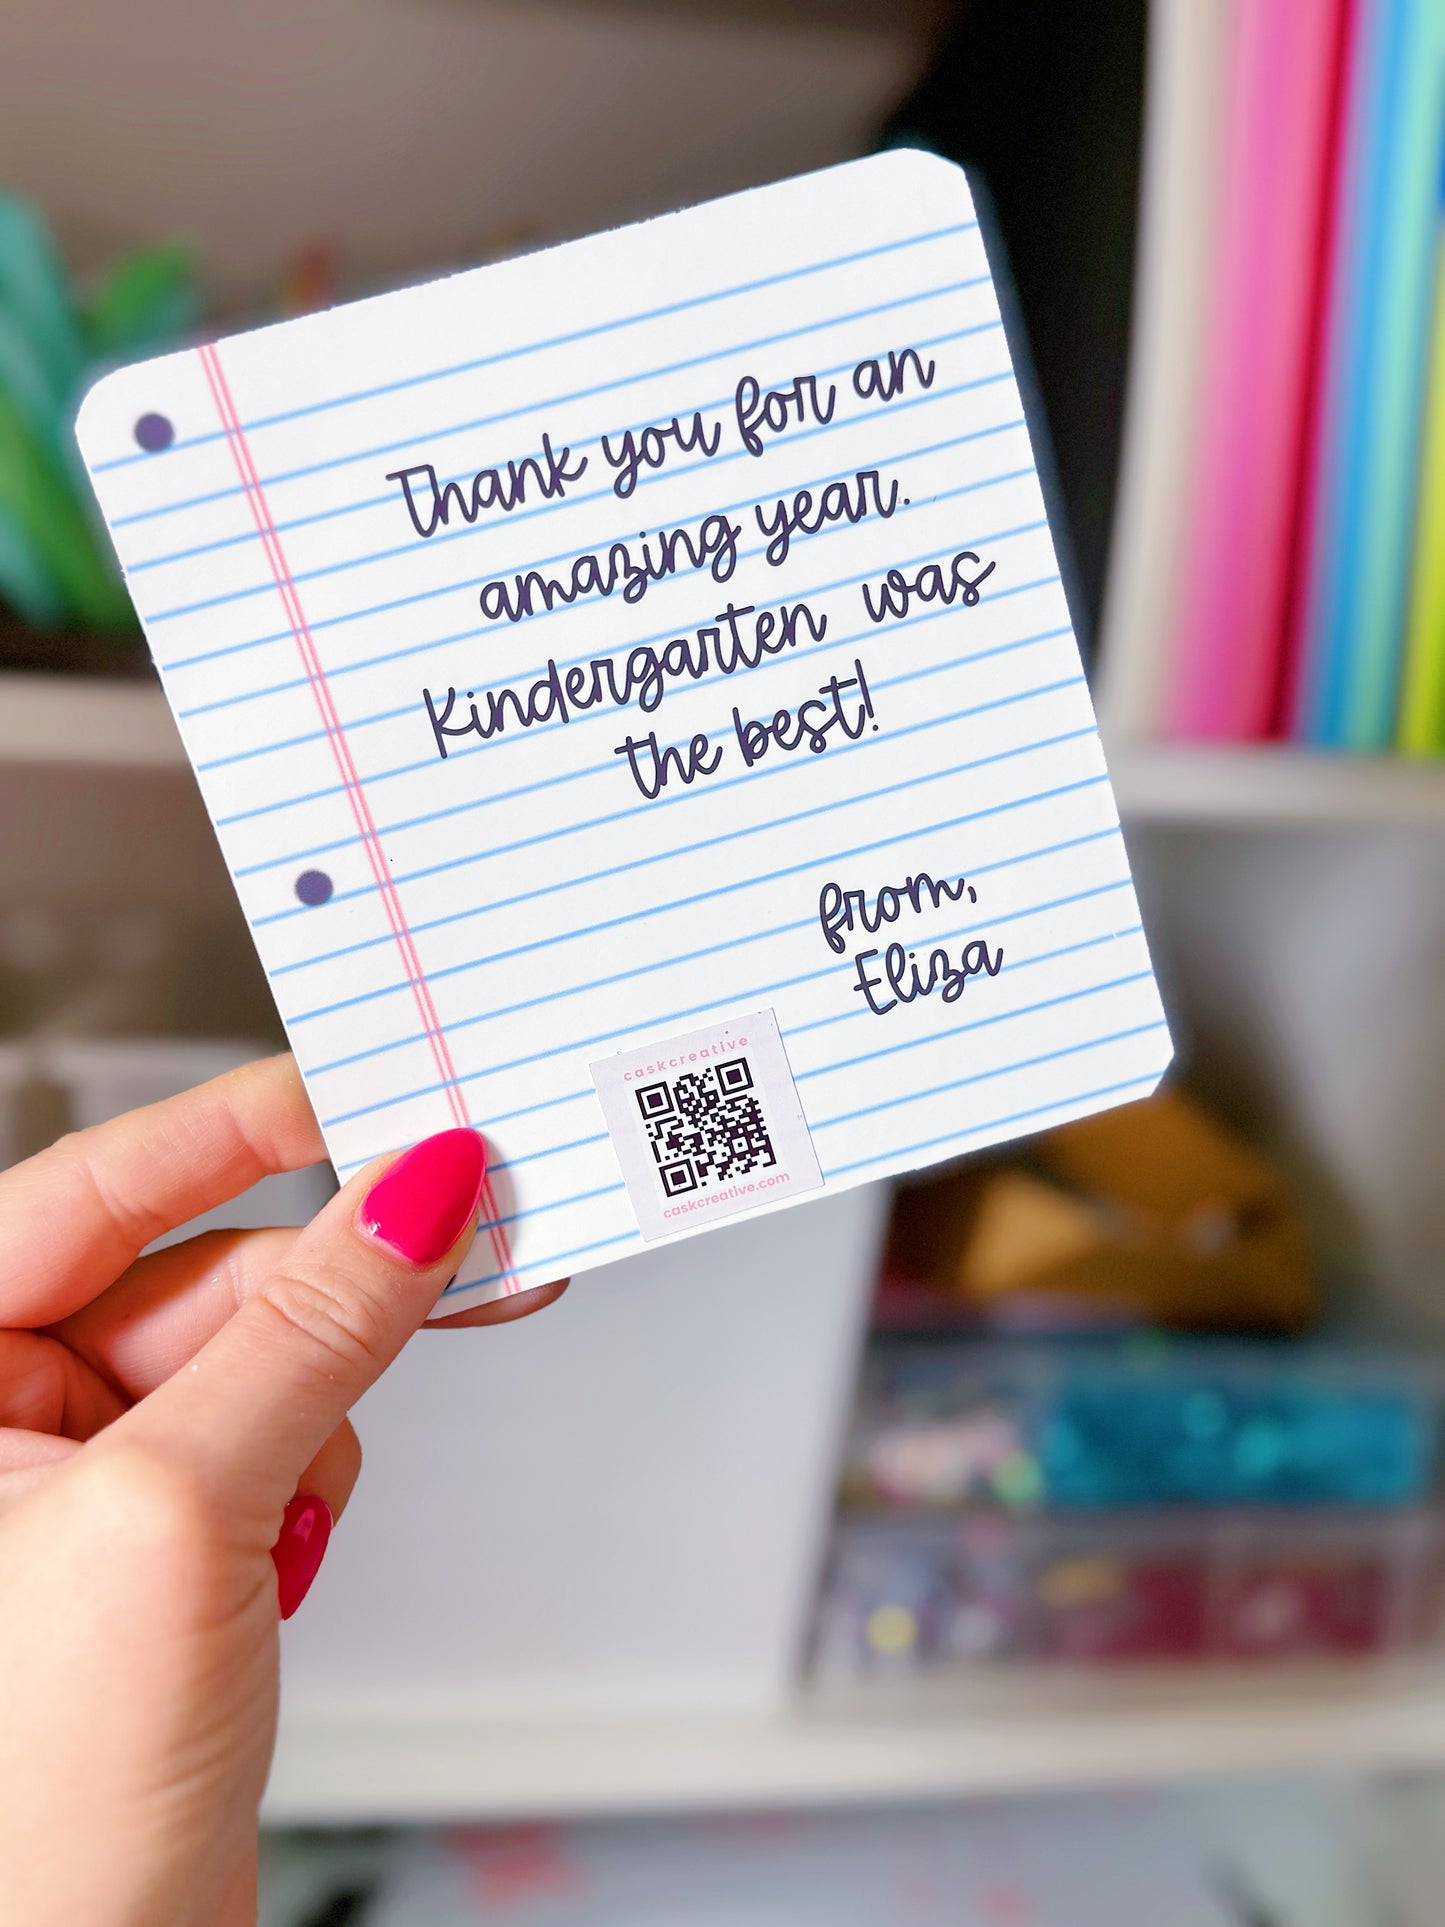 Thank you for an
amazing year.
Kindergarten was
the best!
from,
Eliza
caskcreative
caskcreative.com